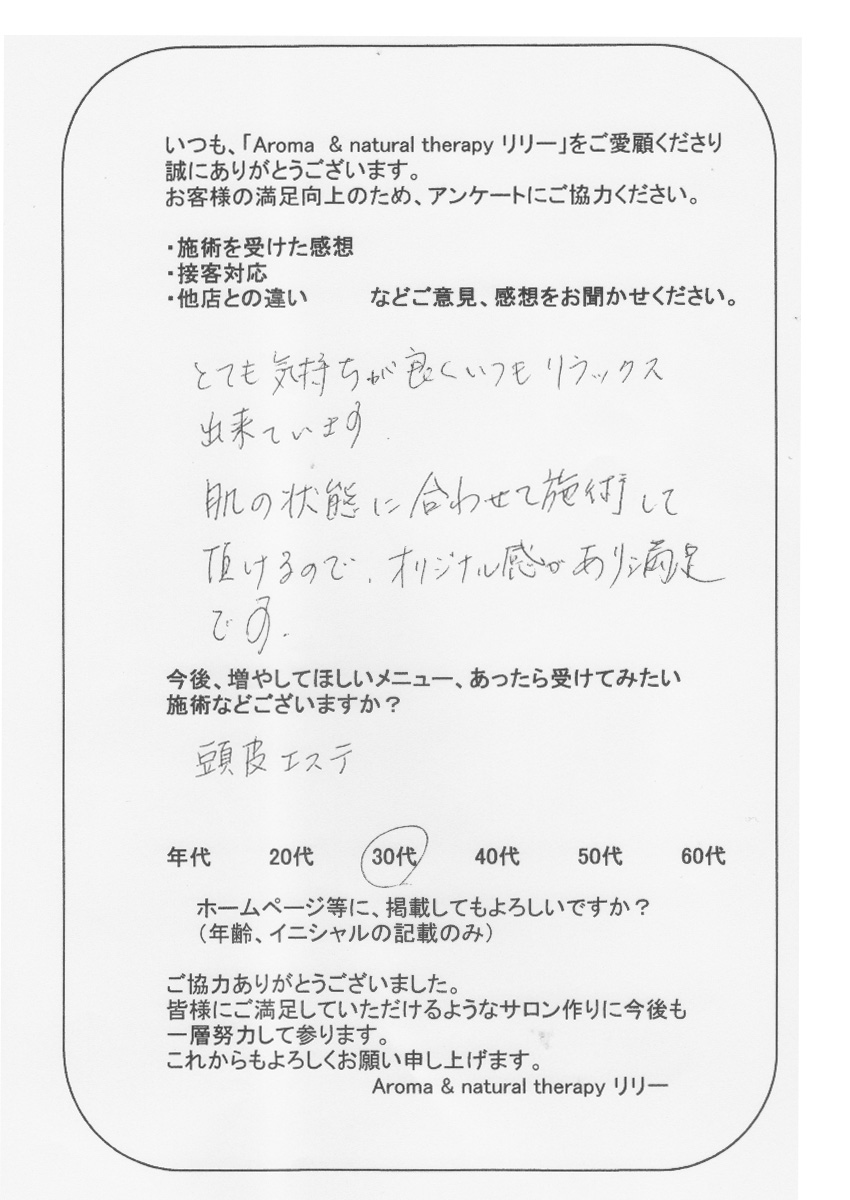 いつも、「Aroma & natural therapy リリー」をご愛顧くださり
誠にありがとうございます。
お客様の満足向上のため、アンケートにご協力ください。
・施術を受けた感想
・接客対応
・他店との違い　　などご意見、感想をお聞かせください。
とても気持ちが良くいつもリラックス
出来ています。
肌の状態に合わせて施術して
頂けるので、オリジナル感があり満足
です。
今後、増やしてほしいメニュー、あったら受けてみたい
施術などございますか？
頭皮エステ
年代　20代　30代　40代　50代　60代
ホームページ等に、掲載してもよろしいですか？
（年齢、イニシャルの記載のみ）
ご協力ありがとうございました。
皆様にご満足していただけるようなサロン作りに今後も
一層努力して参ります。
これからもよろしくお願い申し上げます。
Aroma & natural therapy リリー